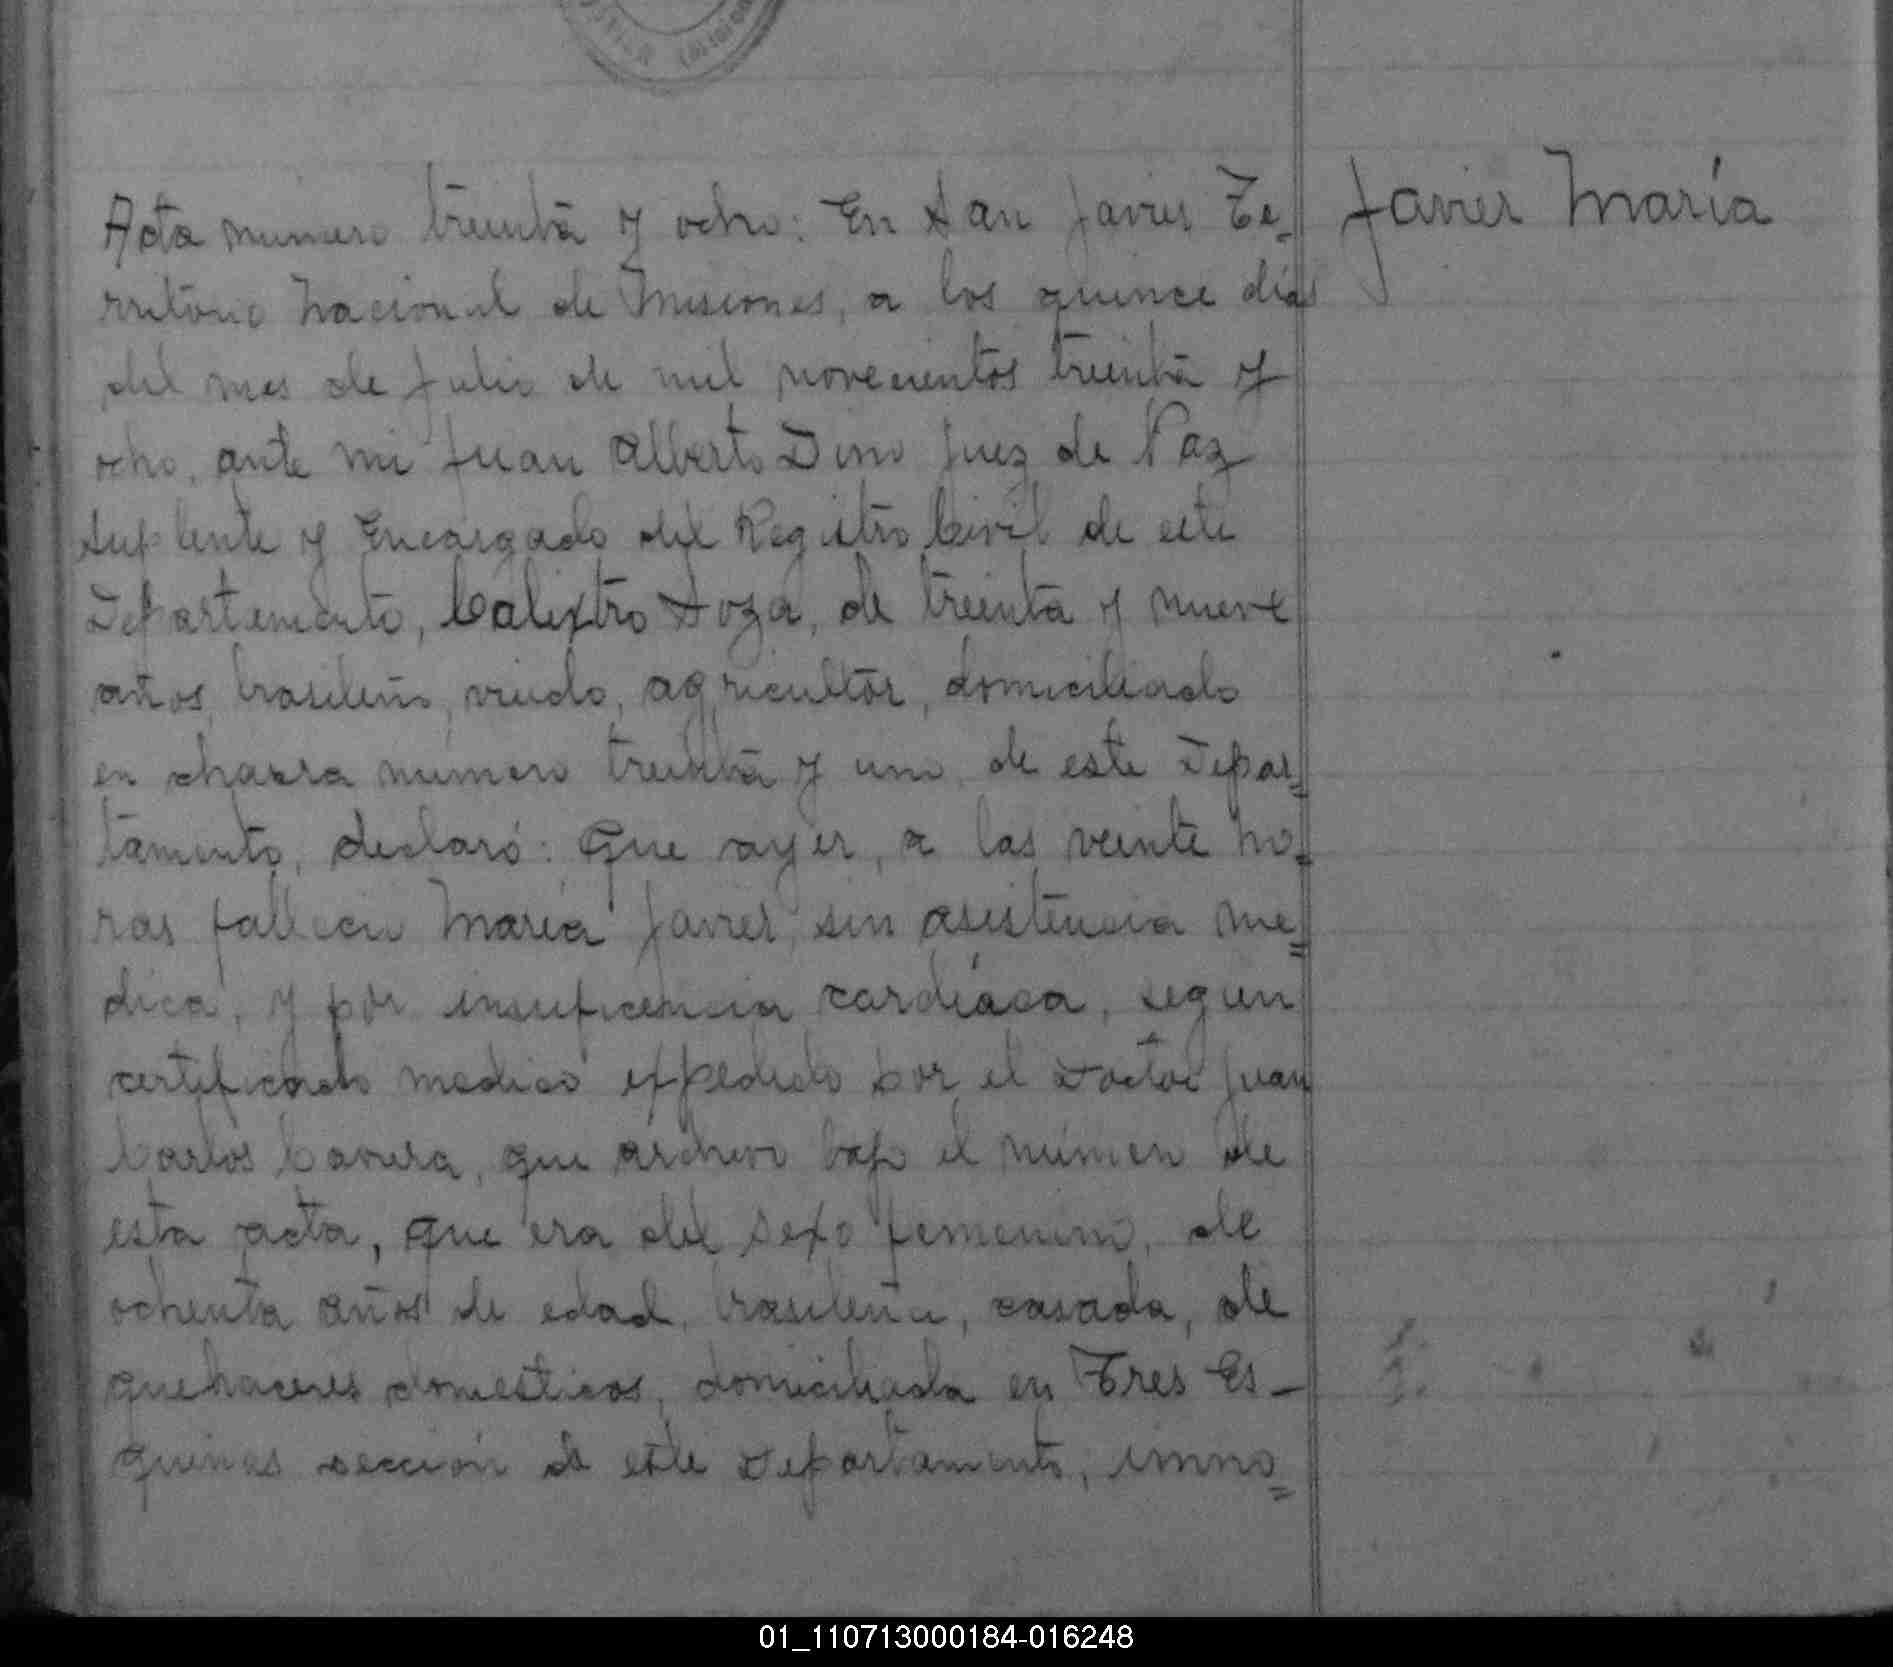 Acta numero treinta y ocho: En San Javier Te-
rritorio Nacional de Misiones, a los quince días
del mes de Julio de mil novecientos treinta y
ocho, ante mi Juan Alberto Dino Juez de Paz
suplente y Encargado del Registro Civil de este
Departamento, Calixtro Soza, de treinta y nueve
años, brasileño, viudo, agricultor, domiciliado
en chacra número treinta y uno de este Depar=
tamento, declaró: Que ayer, a las veinte ho=
ras falleció María Javier, sin asistencia me=
dica, y por insuficencia cardíaca, segun
certificado medico expedido por el Doctor Juan
Carlos, que archivo bajo el número de
esta acta, que era del sexo femenino, de
ochenta años de edad, brasileña, casada, de
quehaceres domesticos, domiciliada en Tres Es-
quinas sección de este Departamento,
Javier María
01_110713000184-016248